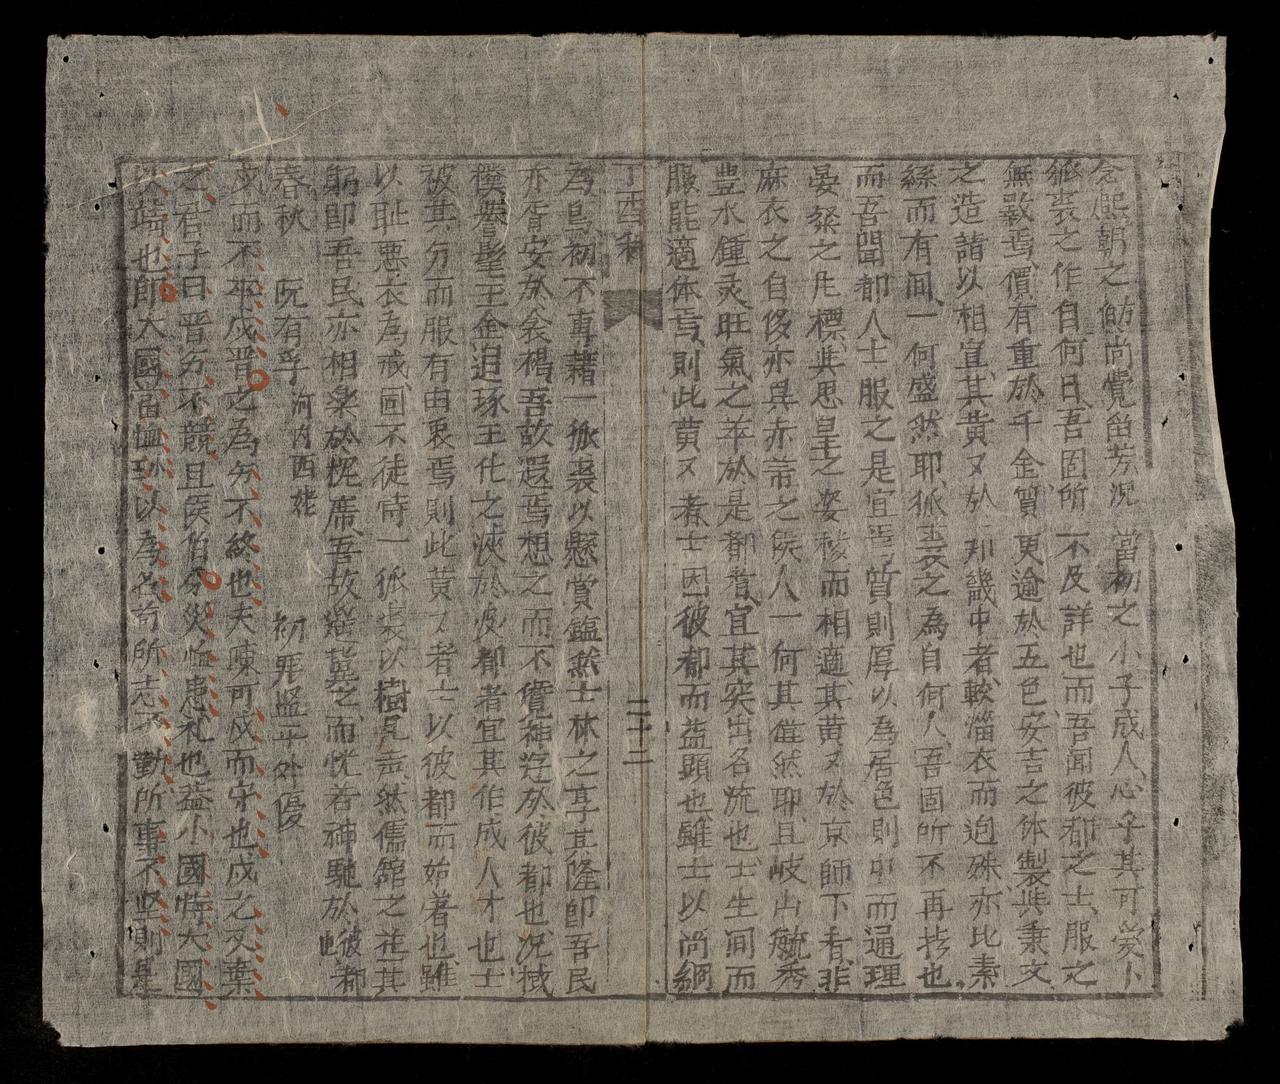 念熙朝之舫尚覺留芳況當初之小子成人心子其可蒙卜
狐裘之作自何日吾固所不及詳也而吾聞彼都之士服之
無斁焉價有重於千金質更逾於五色安吉之体製與秉文
之造詣以相宜其黃又於知幾中者較淄衣而迥殊亦比素
絲而有间一何盛然耶狐裘之為自何人吾固所不再找也
而吾聞都人士服之是宜焉質則厚以為居色則中而通理
晏粲之凡標與思皇之姿稜而相適其黃又於京師下者非
麻衣之自侈亦異赤芾之候人一何其雄然耶且岐山毓秀
豊水鍾灵旺氣之萃於是都者宜其突出名流也士生间而
服能適体焉則此黃又者士因彼都而益顯也雖士以尚絅
丁酉科
二十二
為烏初不專藉一狐裘以懸賞鑑然士林之享其隆即吾民
亦胥安於衾楊吾故遐焉想之而不覺神遊於彼都也况棫
僕譽髦王金追琢王化之浹於彼都者宜其作成人才也士
被其分而服有由衷焉則此黃又者士以彼都而始著也雖
以恥惡衣為戒固不徒恃一狐裘以樹見声然儒館之祉其
躬即吾民亦相樂於枕席吾故遙冀之而恍若神馳於彼都也
春秋 阮有孚 河内西姥 初飛盈平外優
戍而不卒戍晋之為分不終也夫陳可戍而守也戍之又棄
之君子曰晋分不競且侯伯分災恤患礼也益小國恃大國
以歸也即大國畱恤列以為名苟所志不勤所事不坚則是